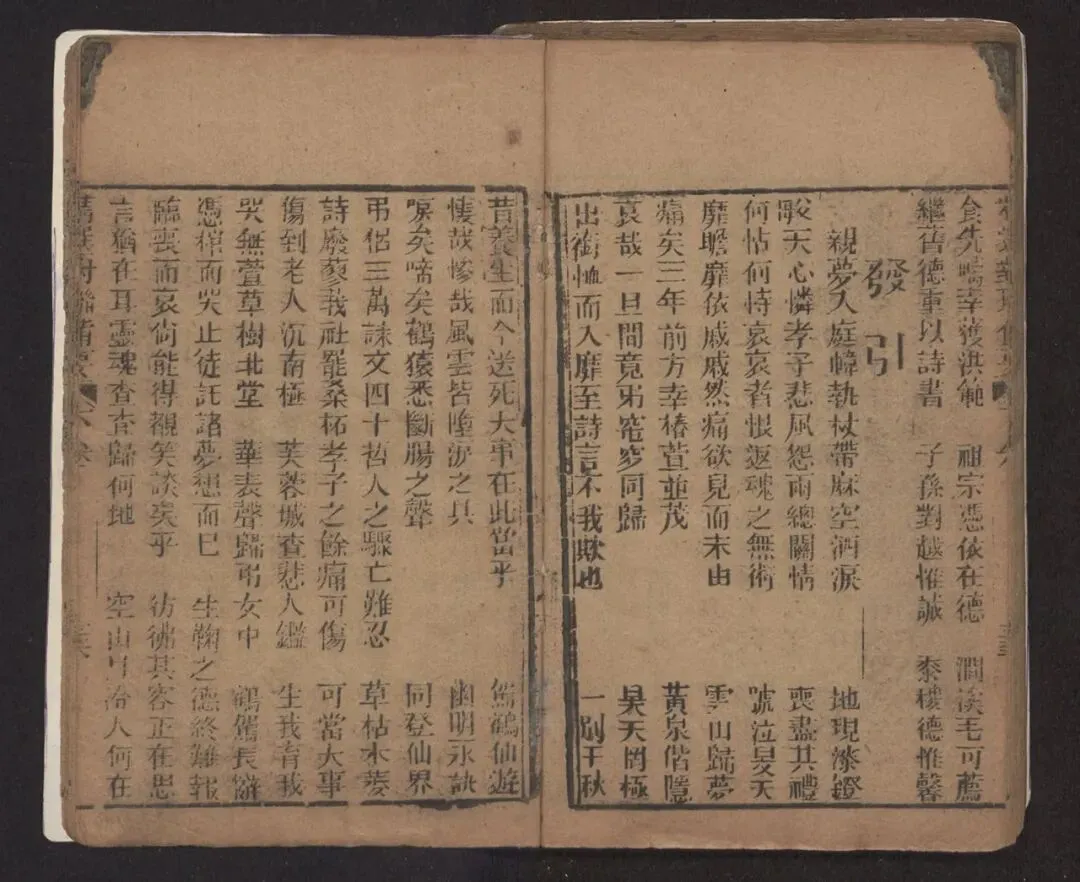 食先疇幸獲洪範 祖宗憑依在德 澗溪毛可薦
繼舊德重以詩書 子孫對越惟誠 黍稷德惟馨
發引
親夢入庭幃執杖帶麻空洒淚 地現漆鐙
歿天心憐孝子悲風怨雨總關情 喪盡其禮
何怙何恃哀哀者恨返魂之無術 號泣旻天
靡瞻靡依戚戚然痛欲見而未由 雲山歸夢
痛矣三年前方幸椿萱並茂 黃泉偕隱
哀哉一旦間竟弔窀穸同歸 昊天罔極
出銜恤而入靡至詩言不我欺也 一別千秋
昔養生而今送死大事在此當乎 鸞鶴仙遊
悽哉慘哉風雲皆墮淚之具 幽明永訣
唳矣啼矣鶴猿悉斷腸之聲 同登仙界
弔侶三萬誄文四十哲人之驟亡難忍 草枯木萎
詩廢蓼莪社罷桑柘孝子之餘痛可傷 可當大事
傷到老人沉南極 芙蓉城查悲人鑑 生我育我
哭無萱草樹北堂 華表聲歸弔女中 鶴馭長辭
憑棺而哭止徒託諸夢想而已 生鞠之德終難報
臨喪而哀尙能得親笑談矣乎 彷彿其容正在思
言猶在耳靈魂杳杳歸何地 空山月冷人何在